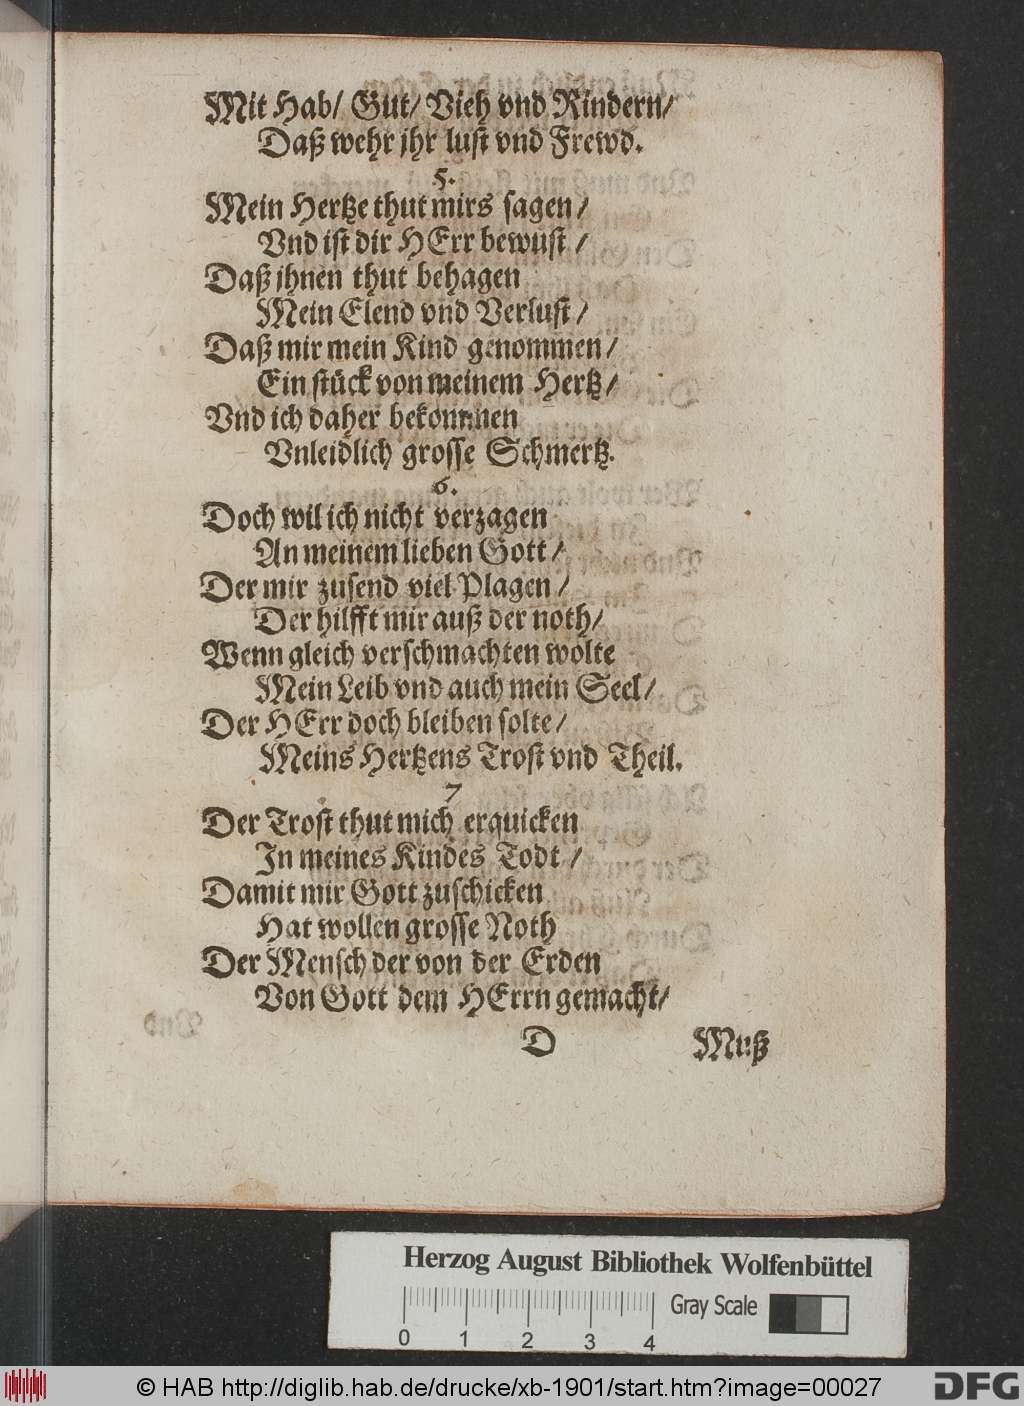 Mit Hab/ Gut/ Vieh vnd Rindern/
Daß wehr jhr lust vnd Frewd.
5.
Mein Hertze thut mirs sagen/
Vnd ist dir HErr bewust/
Daß jhnen thut behagen
Mein Elend vnd Verlust/
Daß mir mein Kind genommen/
Ein stück von meinem Hertz/
Vnd ich daher bekommen
Vnleidlich grosse Schmertz.
6.
Doch wil ich nicht verzagen
An meinem lieben Gott/
Der mir zusend viel Plagen/
Der hilfft mir auß der noth/
Wenn gleich verschmachten wolte
Mein Leib vnd auch mein Seel/
Der HErr doch bleiben solte/
Meins Hertzens Trost vnd Theil.
7
Der Trost thut mich erquicken
In meines Kindes Todt/
Damit mir Gott zuschicken
Hat wollen grosse Noth
Der Mensch der von der Erden
Von Gott dem HErrn gemacht/
D Muß
Herzog August Bibliothek Wolfenbüttel
Gray Scale
0 1 2 3 4
© HAB http://diglib.hab.de/drucke/xb-1901/start.htm?image=00027
DFG